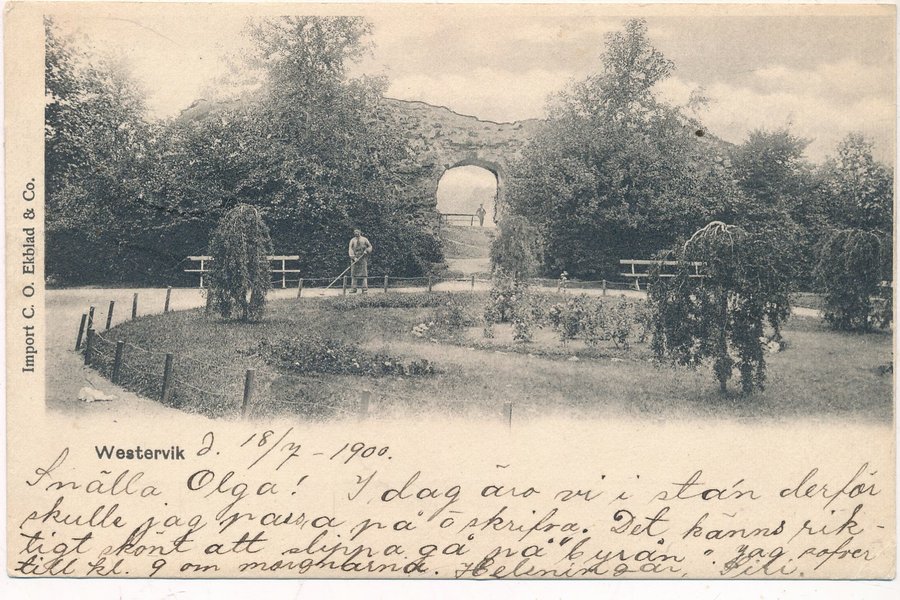 Import C. O. Ekblad & Co.
Westervik d. 18/7 - 1900.
Snälla Olga! I dag äro vi i stan derför
skulle jag passa på o skrifva. Det känns rik-
tigt skönt att slippa gå på "byrån". Jag sofver
till kl. 9 om morgnarna. Helsningar, Siri.